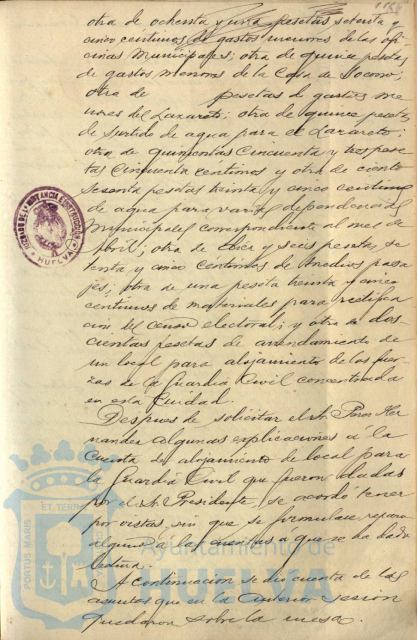 otra de ochenta y una pesetas setenta y
cinco centimos de gastos menores de las ofi
cinas Municipales; otra de quince pesetas
de gastos menores de la Casa de Socorro;
otra de pesetas de gastos me
nores del Lazareto; otra de quince pesetas
de surtido de agua para el Lazareto;
otra de quinientas cincuenta y tres pese
tas cincuenta centimos y otra de ciento
sesenta pesetas treinta y cinco centimos
de agua para varias dependencias
Municipales correspondiente al mes de
Abril; otra de doce y seis pesetas se
tenta y cinco centimos de medios pasa
jes; otra de una peseta treinta y cinco
centimos de materiales para rectifica
cion del censo electoral; y otra de dos
cientas pesetas de arrendamiento de
un local para alojamiento de las fuer
zas de la Guardia Civil concentrada
en esta Ciudad.
Despues de solicitar el Sr. Her
nandez algunas explicaciones á la
cuenta de alojamiento de local para
la Guardia Civil que fueron dadas
por el Sr. Presidente, se acordó tener
por vistas, sin que se formulase reparo
alguno a las cuentas a que se ha dado
lectura.
A continuacion se dio cuenta de los
asuntos que en la anterior sesion
quedaron sobre la mesa.
JUZGADO DE 1ª INSTANCIA E INSTRUCCION
HUELVA
PORTUS MARIS ET TERRAE
Ayuntamiento de
HUELVA